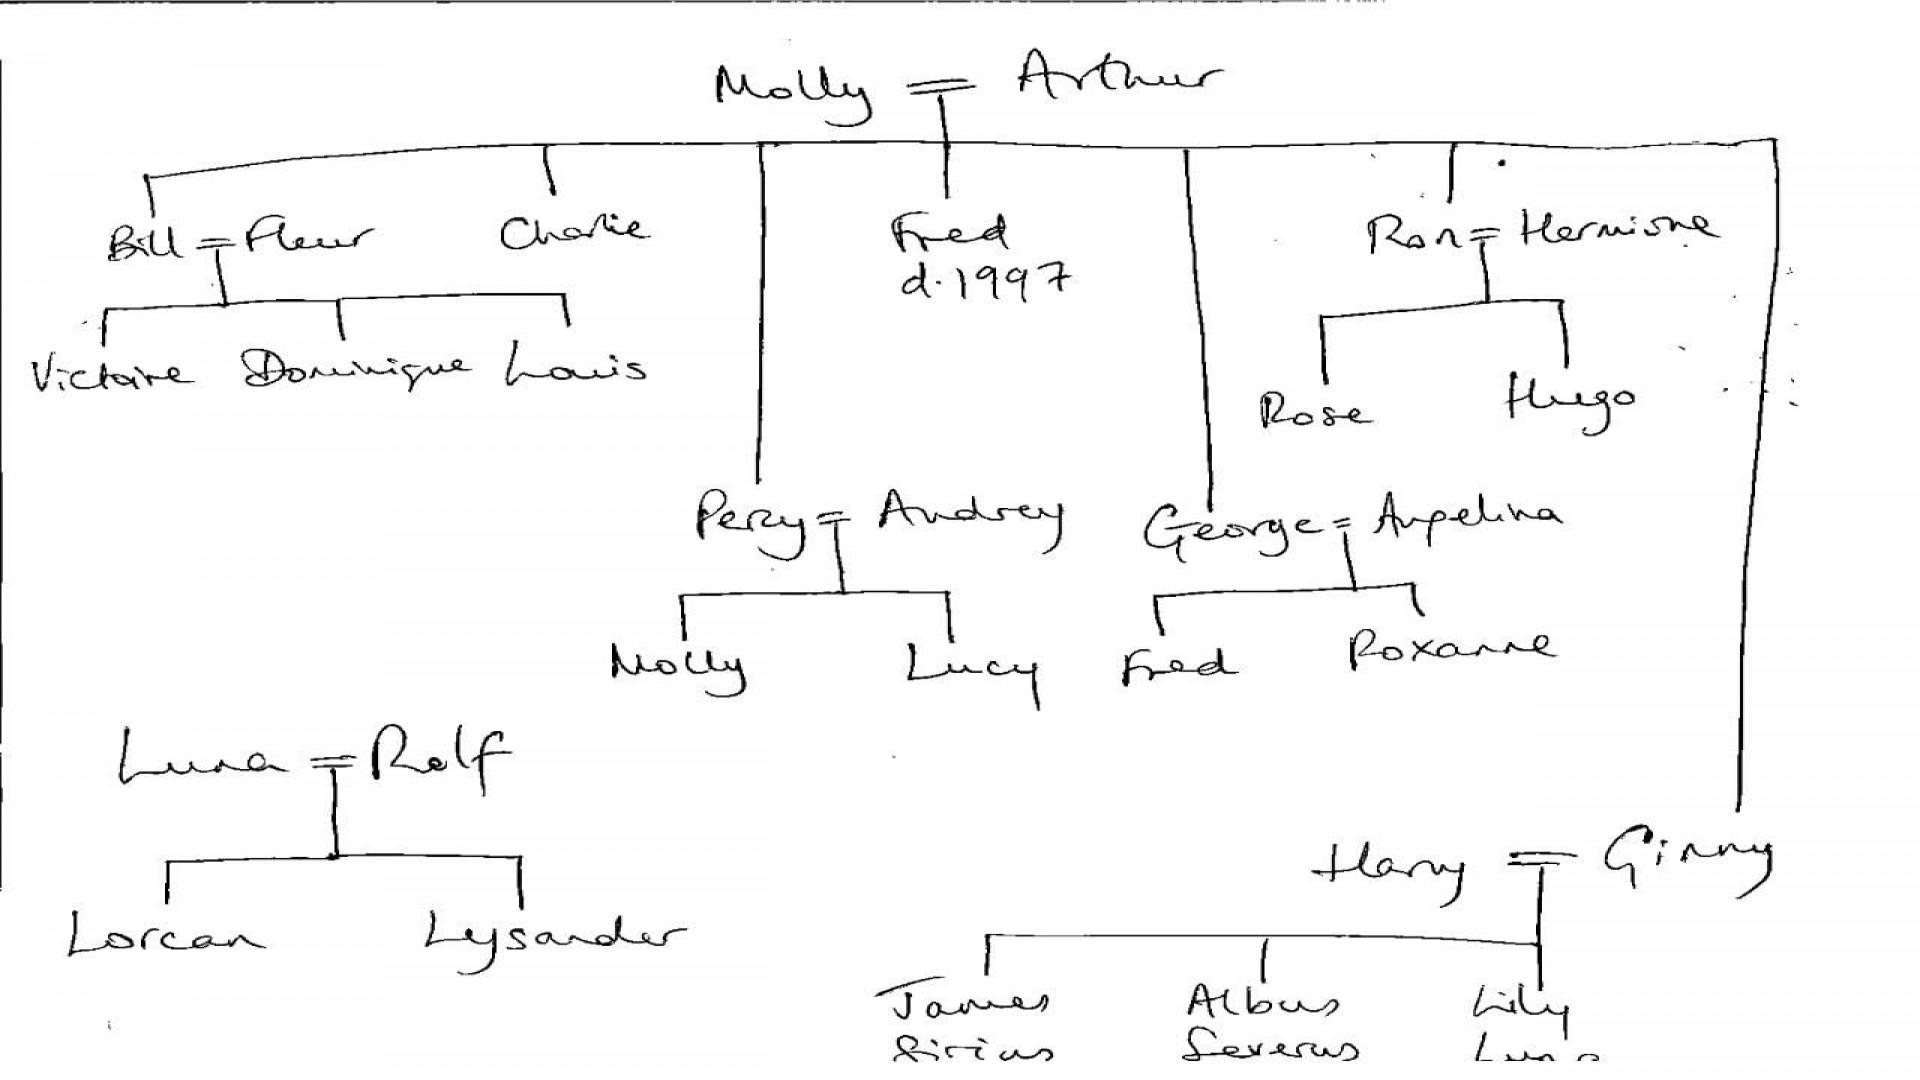 Molly = Arthur
Bill = Fleur Charlie Fred Ron = Hermione
d. 1997
Victoire Dominique Louis Rose Hugo
Percy = Audrey George = Angelina
Molly Lucy Fred Roxanne
Luna = Rolf
Harry = Ginny
Lorcan Lysander
James Albus Lily
Sirius Severus Luna